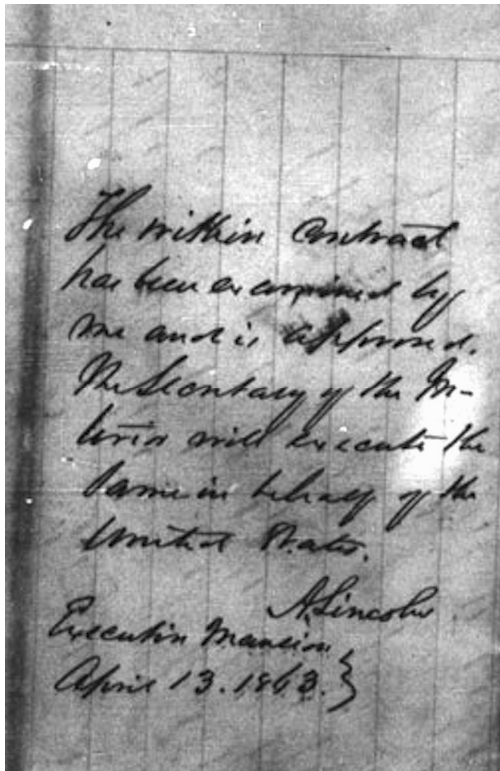 The within contract
has been examined by
me and is approved.
The Secretary of the In-
terior will execute the
same in behalf of the
United States.
A. Lincoln
Executive Mansion
April 13. 1863. }